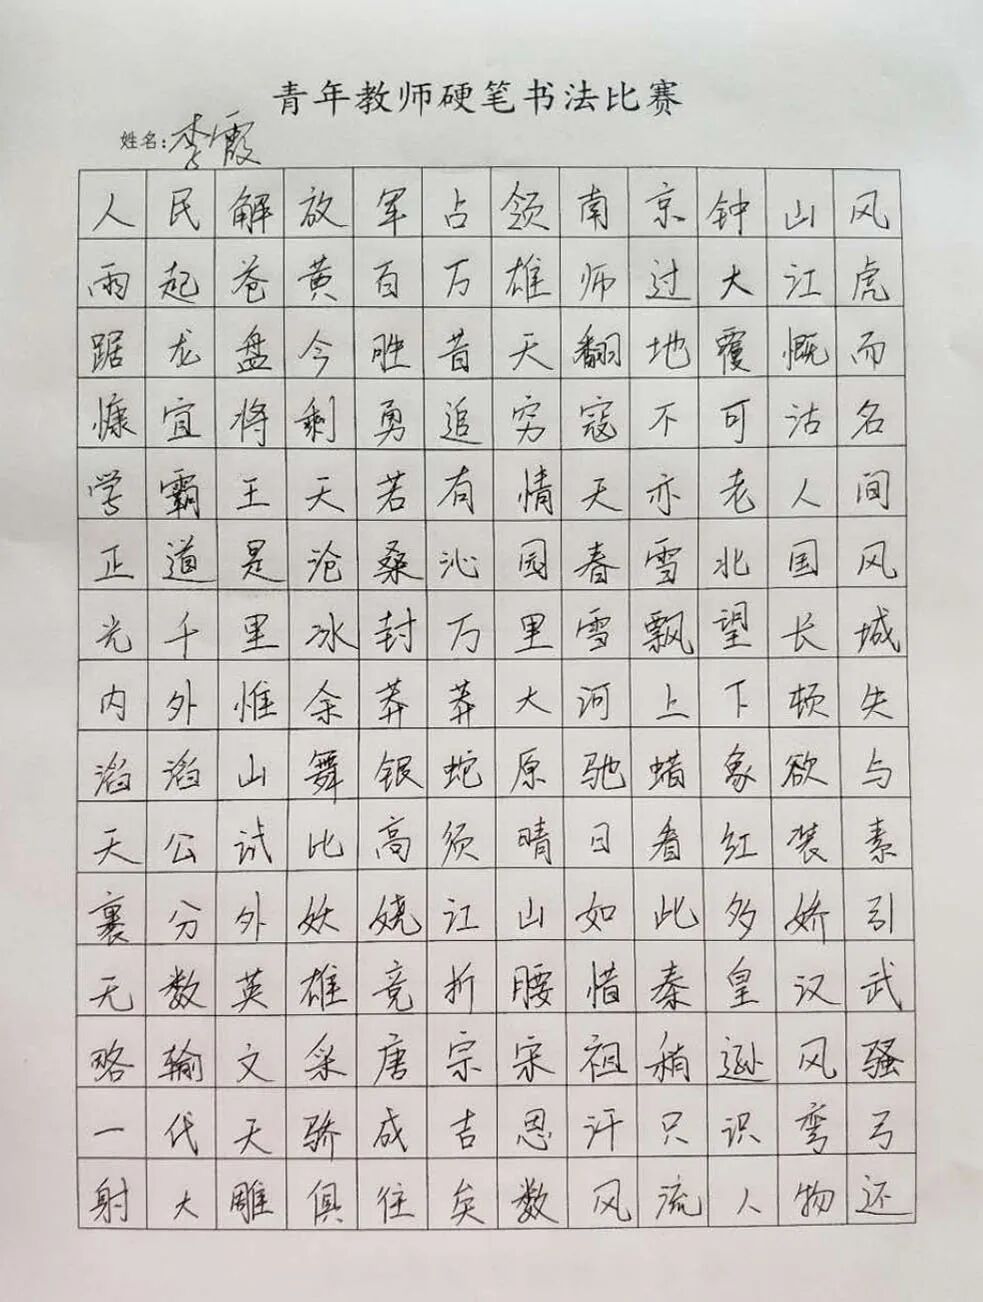 青年教师硬笔书法比赛
姓名:李霞
人民解放军占领南京钟山风
雨起苍黄百万雄师过大江虎
踞龙盘今胜昔天翻地覆慨而
慷宜将剩勇追穷寇不可沽名
学霸王天若有情天亦老人间
正道是沧桑沁园春雪北国风
光千里冰封万里雪飘望长城
内外惟余莽莽大河上下顿失
滔滔山舞银蛇原驰蜡象欲与
天公试比高须晴日看红装素
裹分外妖娆江山如此多娇引
无数英雄竞折腰惜秦皇汉武
略输文采唐宗宋祖稍逊风骚
一代天骄成吉思汗只识弯弓
射大雕俱往矣数风流人物还